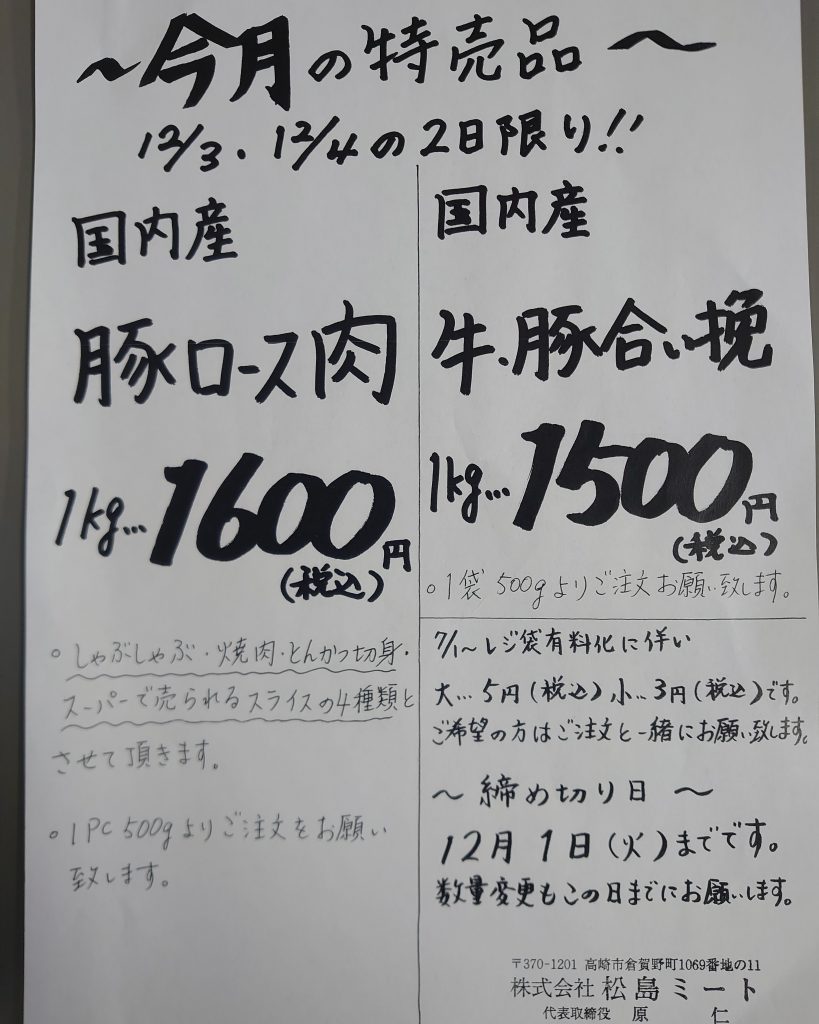 ～今月の特売品～
12/3、12/4の2日限り!!
国内産
豚ロース肉
1kg…1600円
(税込)
○しゃぶしゃぶ・焼肉・とんかつ切身・
スーパーで売られるスライスの4種類と
させて頂きます。
○1PC 500gよりご注文をお願い
致します。
国内産
牛、豚合い挽
1kg…1500円
(税込)
○1袋 500gよりご注文お願い致します。
7/1～レジ袋有料化に伴い
大…5円(税込)小…3円(税込)です。
ご希望の方はご注文と一緒にお願い致します。
～締め切り日～
12月1日(火)までです。
数量変更もこの日までにお願いします。
〒370-1201 高崎市倉賀野町1069番地の11
株式会社 松島ミート
代表取締役 原 仁